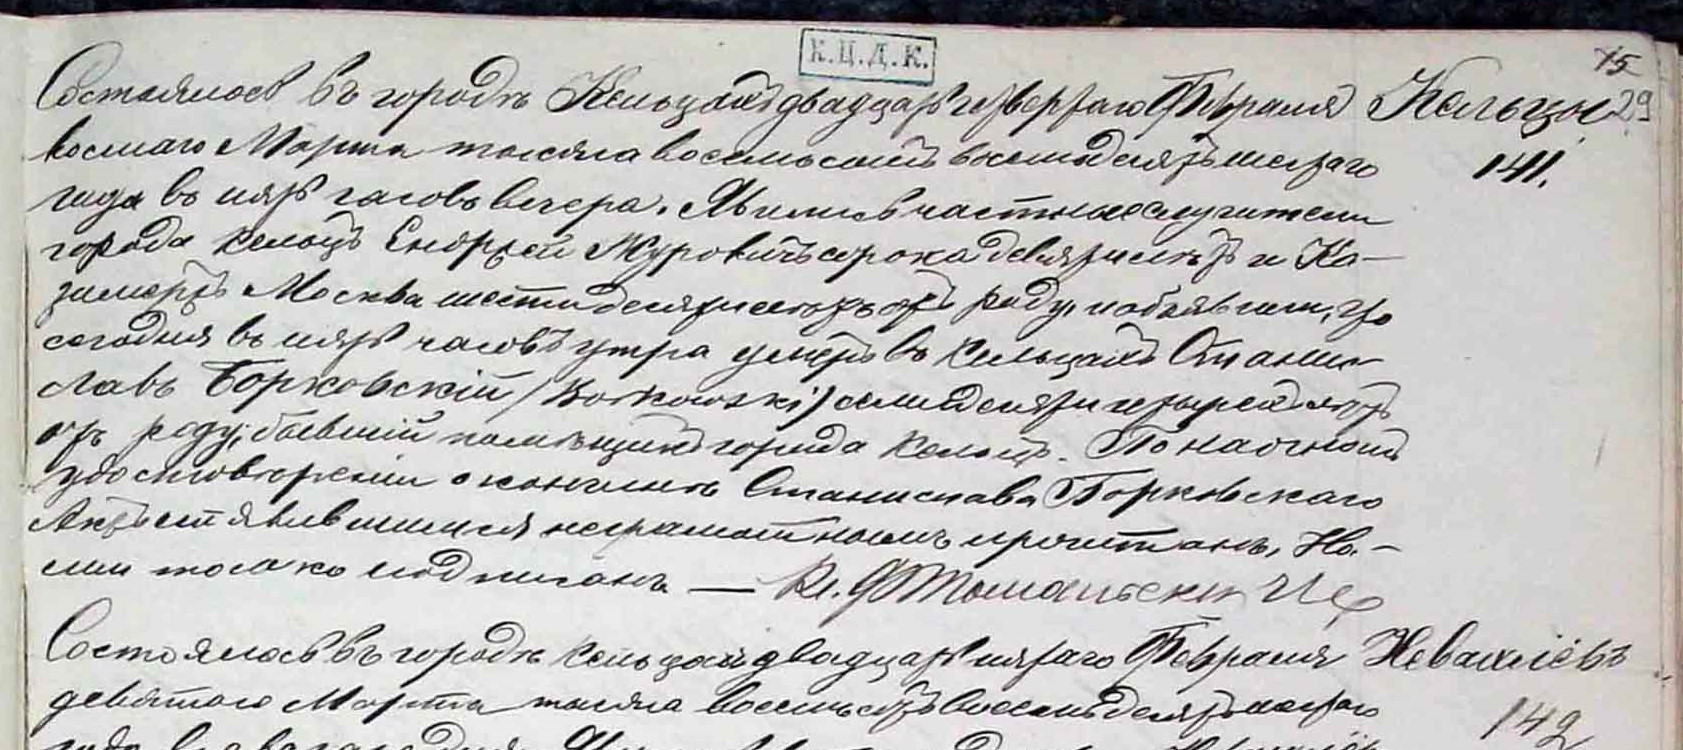 К.Ц.Д.К.
75
29
Состоялось въ городѣ Кельцахъ двадцать четвертаго Февраля
Кельцы
восмаго Марта тысяча восемьсотъ восемдесятъ шестаго
141.
года въ пять часовъ вечера. Явились частные служители
города Кельцъ Ендржей Муровичъ сорока девяти лѣтъ и Ка-
зимержъ Москва шестидесяти лѣтъ отъ роду, и объявили, что
сегодня въ пять часовъ утра умеръ въ Кельцахъ Станис-
лавъ Борковскій /Borkowski/ семидесяти четырехъ лѣтъ
отъ роду, бывшій помѣщикъ города Кельцъ. По наочномъ
удостовѣреніи о кончинѣ Станислава Борковскаго
Актъ сей явившимся неграмотнымъ прочитанъ, На-
ми только подписанъ —
Состоялось въ городѣ Кельцахъ двадцать пятаго Февраля
девятаго Марта тысяча восемьсотъ восемьдесятъ шестаго
142
года